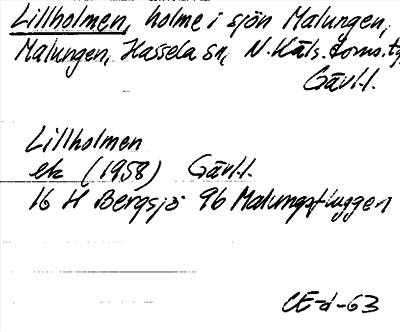 Lillholmen, holme i sjön Malungen,
Malungen, Hassela sn, N. Häls. doms. tg
Gävl.l.
Lillholmen
ek (1958) Gävl.l.
16 H Bergsjö 96 Malungsfluggen
CE-d-63